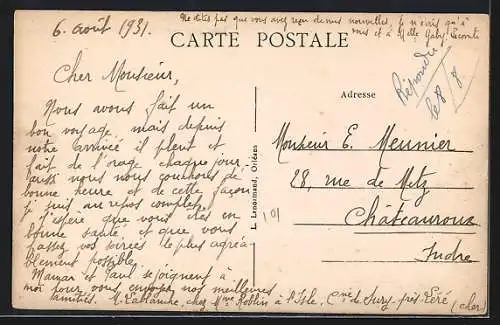 6. août 1931.
Ne dites pas que vous avez reçu de nos nouvelles, je n'écris qu'à
vous et à Melle Gaby Lecomte
CARTE POSTALE
Répondre
le 8 8
Cher Monsieur,
Nous avons fait un
bon voyage, mais depuis
notre arrivée il pleut et
fait de l'orage chaque jour
aussi nous nous couchons de
bonne heure et de cette façon
je suis au repos complet.
J'espère que vous êtes en
bonne santé, et que vous
passez vos soirées le plus agréa-
blement possible.
Maman et Paul se joignent à
moi pour vous envoyer nos meilleures
amitiés. M. Lablanche, chez Mme Roblin à l'Isle, Cne de Sury-près-Léré (Cher)
L. Lenormand, Orléans
Adresse
Monsieur E. Meunier
28, rue de Metz
Châteauroux
Indre
101